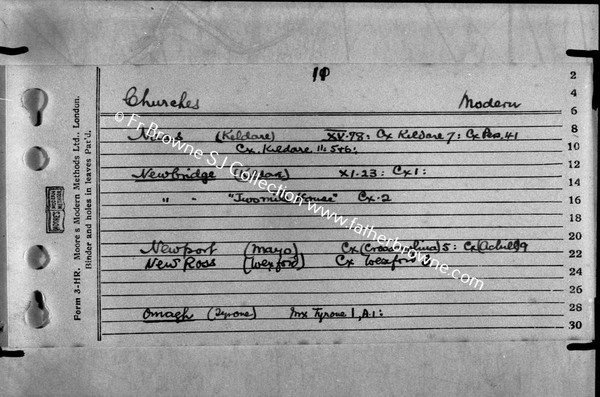 Form 3-HR. Moore's Modern Methods Ltd., London.
Binder and holes in leaves Pat'd.
MOORE'S MODERN METHODS
© Fr Browne SJ Collection www.titanicphotographs.com
Churches Modern
Naas (Kildare) XV.98: Cx Kildare 7: Cx Pos.41
Cx. Kildare 11: 5+6:
Newbridge XI.23: Cx 1:
" - Cx.2
Newport (Mayo) 5:
New Ross (Wexford) Cx Wexford
Omagh (Tyrone) Mx Tyrone 1, A.1:
2
4
6
8
10
12
14
16
18
20
22
24
26
28
30